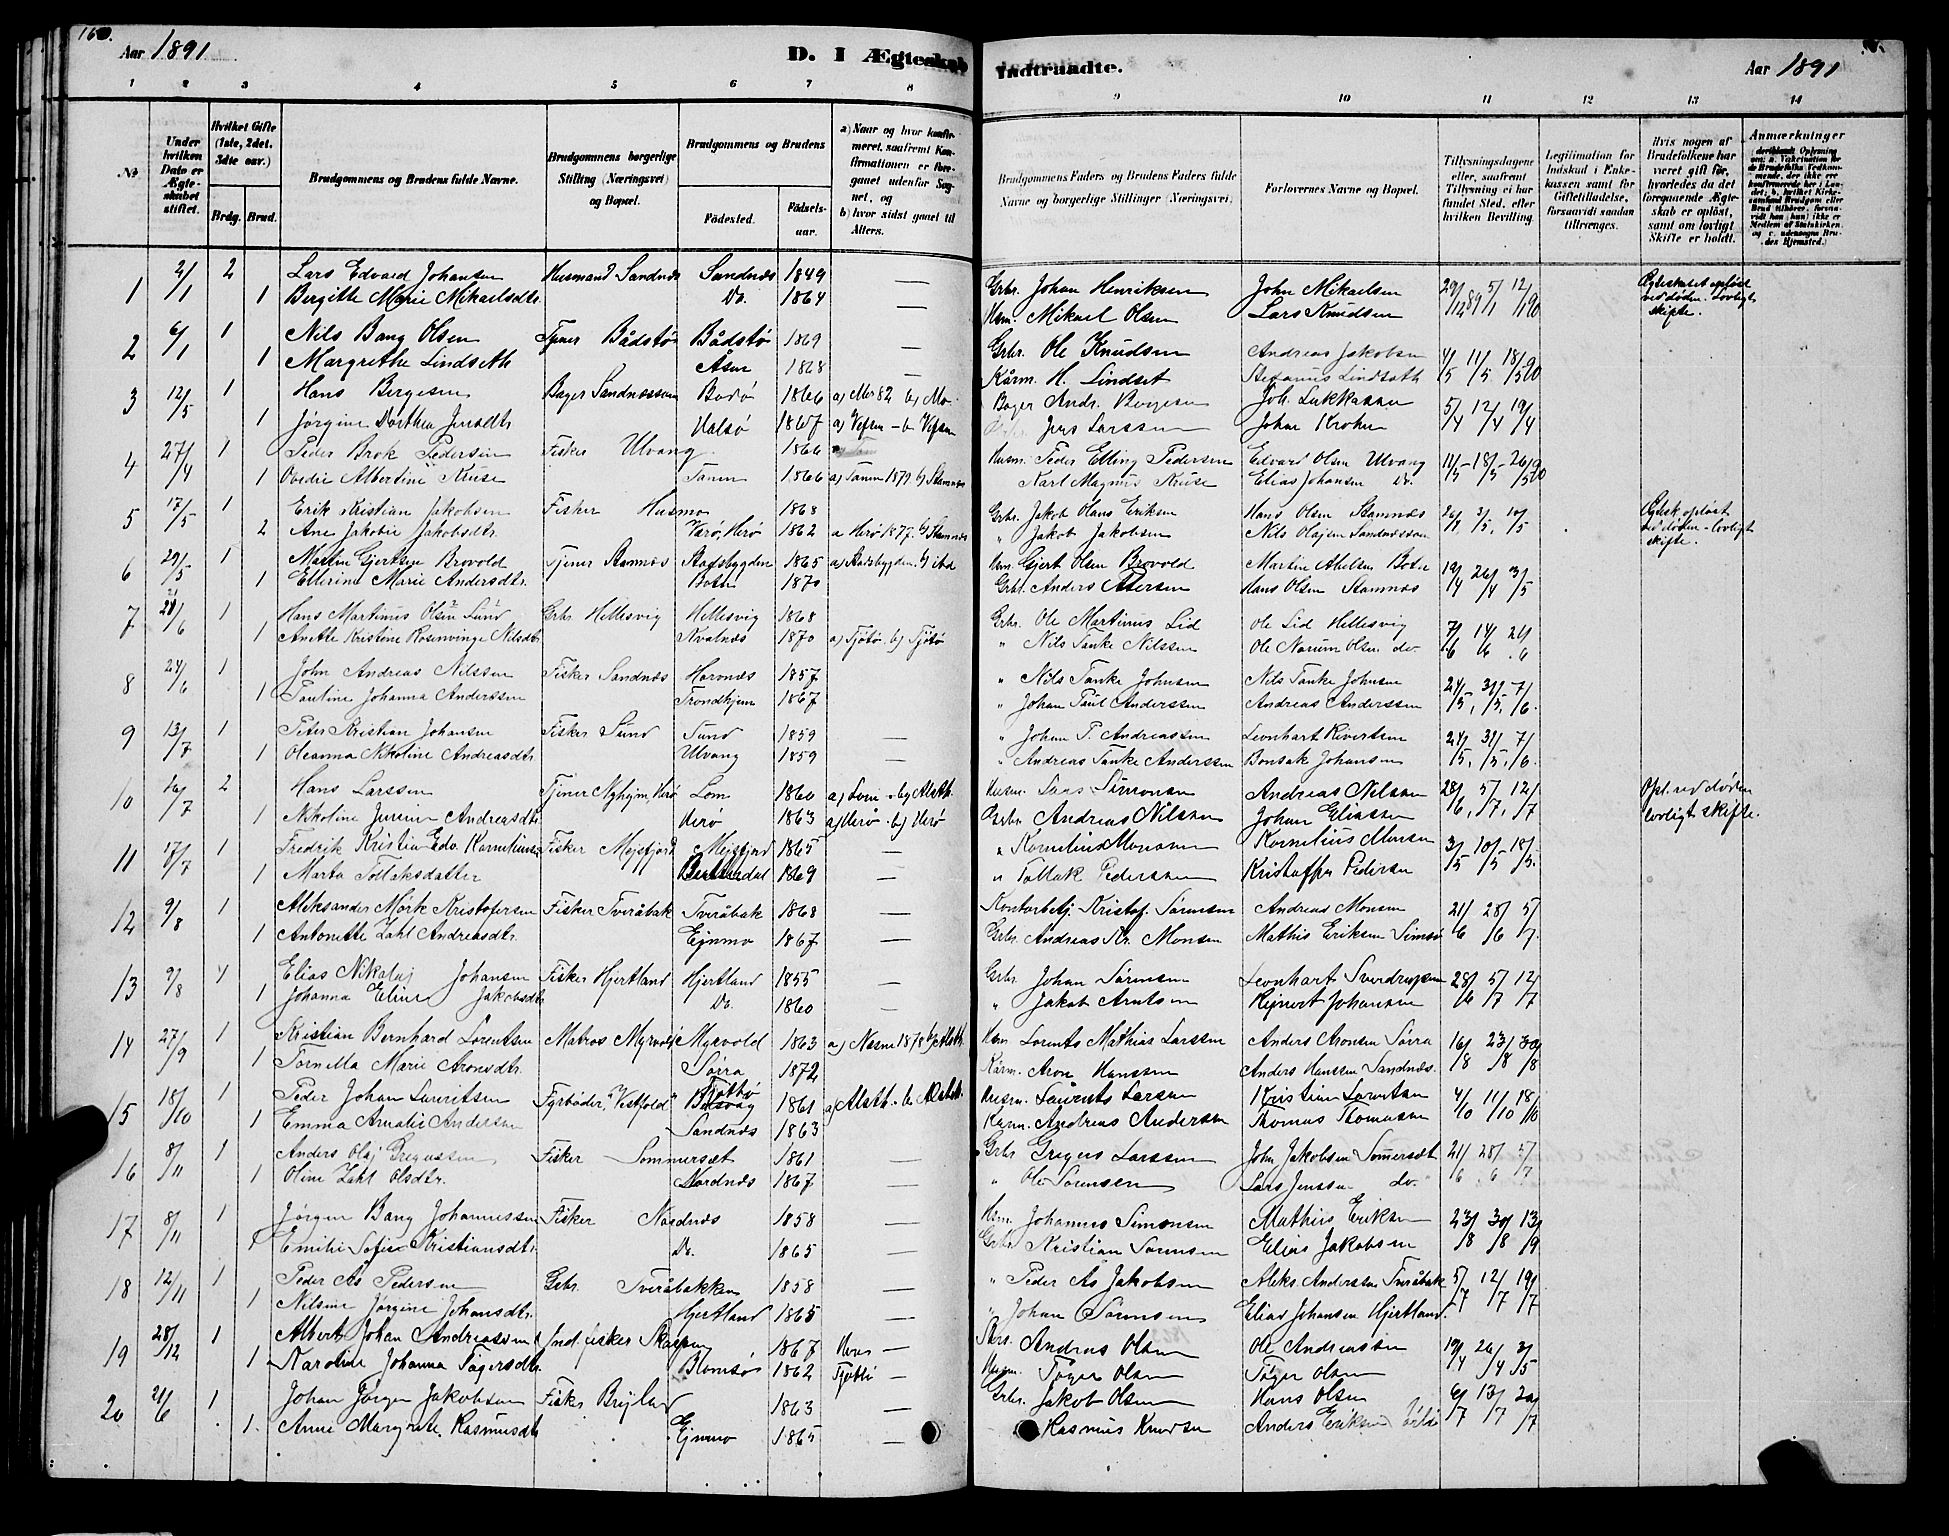 160.
Aar 1891
D. I Ægteskab Indtraadte.
Aar 1891
1 2 3 4 5 6 7 8 9 10 11 12 13 14
No
Under hvilken Dato er Ægteskabet stiftet.
Hvilket Gifte (1ste, 2det, 3die osv.)
Brdg. Brud.
Brudgommens og Brudens fulde Navne.
Brudgommens borgerlige Stilling (Næringsvei) og Bopæl.
Brudgommens og Brudens
Fødested.
Fødselsaar.
a) Naar og hvor konfirmeret, saafremt Konfirmationen er foregaaet udenfor Sognet, og
b) hvor sidst gaaet til Alters.
Brudgommens Faders og Brudens Faders fulde Navne og borgerlige Stillinger (Næringsvei)
Forlovernes Navne og Bopæl.
Tillysningsdagene eller, saafremt Tillysning ei har fundet Sted, efter hvilken Bevilling.
Legitimation for Indskud i Enkekassen samt for Giftetilladelse, forsaavidt saadan tiltrænges.
Hvis nogen af Brudefolkene har været gift før, hvorledes da det foregaaende Ægteskab er opløst, samt om lovligt Skifte er holdt.
Anmærkninger
1 2/1 2 Lars Edvard Johansen Husmand Sandnæs Sandnæs 1849 — Grbr. Johan Henriksen John Mikaelsen 29/12 89 5/1 12/1 90 Ægteskabet opløst ved døden. Lovligt skifte.
1 Bergitte Marie Mikaelsdtr. Do. 1864 Hsm. Mikael Olsen Lars Knudsen
2 6/1 1 Nils Bang Olsen Tjener Bådstø Bådstø 1869 — Grbr. Ole Knudsen Andreas Jakobsen 4/5 11/5 18/5 90
1 Margrethe Lindseth Åsen 1868 Kårm. H. Lindset Stefanus Lindseth
3 12/5 1 Hans Bergesen Bager Sandnæssøen Bodø 1866 a) Mo 82 b) Mo. Bager Andr. Bergesen Joh. Lukkassen 5/4 12/4 19/4
1 Jørgine Dorthea Jensdtr. Halsø 1867 a) Vefsen - b) Vefsen Jens Larssen Johan Krohn
4 27/4 1 Peder Brok Pedersen Fisker Ulvang 1866 Husm. Peder Elling Pedersen Edvard Olsen Ulvang 11/5 - 18/5 - 26/5 90
1 Ovedie Albertine Kruse Tanen 1866 a) Tanen 1879. b) Stamnæs Karl Magnus Kruse Elias Johansen Do.
5 17/5 1 Erik Kristian Jakobsen Fisker Husmo 1868 Grbr. Jakob Hans Eriksen Hans Olsen Stamnæs 3/5 10/5 Ægtesk. opløst ved døden - lovligt skifte.
2 Ane Jakobie Jakobsdtr. Herø 1862 a Herø 1877. b) Stamnæs " Jakob Jakobsen Nils Olajsen Sandnæssøen
6 29/5 1 Martin Gjertsen Brovold Tjener Stamnæs Stadsbygden 1865 a) Stadsbygden. b) ibd Hsm Gjert Olsen Brovold Martin Abelsen Boten 19/4 26/4 3/5
1 Ellerine Marie Andersdtr. Boten 1870 Grbr. Anders Petersen Hans Olsen Stamnæs
7 21/6 1 Hans Martinus Olsen Lund Grbr Hellesvig Hellesvig 1868 Grbr. Ole Martinus Lid Ole Lid Hellesvig 7/6 14/6 21/6
1 Anette Kristine Rosenvinge Nilsdtr. Kvalnæs 1870 a) Tjøtø b) Tjøtø " Nils Tanke Nilssen Ole Norum Olsen do
8 24/6 1 John Andreas Nilssen Fisker Sandnæs Hornnæs 1857 — " Nils Tanke Johnsen Nils Tanke Johnsen 24/5, 31/5, 7/6.
1 Pauline Johanna Anderssen Trondhjem 1867 " Johan Paul Anderssen Andreas Anderssen
9 13/7 1 Peter Kristian Johansen Fisker Sund Sund 1859 — " Johan P. Andreassen Leonhart Rivertsen 24/5, 31/5, 7/6.
1 Oleanna Nikoline Andreasdtr. Ulvang 1859 — " Andreas Tanke Anderssen Bonsak Johansen
10 16/7 2 Hans Larssen Tjener Nyhejm, Herø Lom 1860 a) Lom - b) Alsth. Husm. Lars Simonsen Andreas Nilssen 28/6, 5/7, 12/7 Opl. ved døden lovligt skifte.
1 Nikoline Jensen Andreasdtr. Herø 1863 a) Herø - b) Herø Grbr. Andreas Nilssen Johan Eliassen
11 17/7 1 Fredrik Kristian Edv. Kornelius Fisker Mejsfjord Mejsfjord 1865 — " Kornelius Monsen Kornelius Monsen 3/5 10/5 18/5.
1 Marta Tollaksdatter 1869 — " Tollak Pedersen Kristoffer Pedersen
12 9/8 1 Aleksander Mørk Kristofersen Fisker Tveråbak Tveråbak 1868 — Kontorbetj. Kristof. Sørensen Andreas Monsen 21/6 28/6 5/7.
1 Antonette Zahl Andreasdtr. Ejnmo 1867 Grbr. Andreas Kr. Monsen Mathis Eriksen Simsø
13 9/8 1 Elias Nikolaj Johansen Fisker Hjertland Hjertland 1855 — Grbr Johan Sørensen Leonhart Sverdrupsen 28/6 5/7 12/7
1 Johanna Eline Jakobsdtr Do. 1860 " Jakob Arntsen Rejnert Johansen
14 27/9 1 Kristian Bernhard Lorentsen Matros Myrvold Myrvold 1863 a) Næsne 1878 b) Alsth. Hsm Lorents Mathias Larssen Anders Aronsen Sørra 16/8 23/8 30/8
1 Pernella Marie Aronsdtr. Sørra 1872 Kårm. Aron Hanssen Anders Hanssen Sandnæs.
15 18/10 1 Peder Johan Lauritsen Fyrbøder, "Vestfold" Tjøttø 1861 a) Alsth. - b. Alsteh. Husm. Laurits Larsen Kristian Lorentsen 4/10 11/10 18/10
1 Emma Amalie Andersen Sandnæs 1863 Kårm. Andreas Andersen Thomas Thomassen
16 8/11 1 Anders Olaj Gregussen Fisker Sommersæt 1861 — Grbr Gregers Larssen John Jakobsen Somersæt 21/6 28/6 5/7
1 Oline Zahl Olsdtr. Nordnæs 1867 — " Ole Sørensen Lars Jenssen do.
17 8/11 1 Jørgen Bang Johannessen Fisker Nordnæs 1858 — Hsm. Johannes Simonsen Mathias Eriksen 23/8 30/8 13/9
1 Emilie Sofie Kristiansdtr. Do. 1865 Grbr Kristian Sørensen Elias Jakobsen
18 12/11 1 Peder Ås Pedersen Grbr. Tveråbakken 1858 " Peder Ås Jakobsen Aleks. Anderssen Tveråbak 5/7 12/7 19/7
1 Nilsine Jørgine Johansdtr. Hjertland 1865 " Johan Sørensen Elias Johansen Hjertland
19 28/12 1 Albert Johan Andreassen Ind. fisker Skagen 1867 Herø — Andreas Olsen Ole Andreassen 19/4 26/4 3/5
1 Karoline Johanna Tøgersdtr. Blomsø 1862 Tjøttø — Husm. Tøger Olsen Tøger Olsen
20 21/6 1 Johan Jørgen Jakobsen Fisker 1863 — Grbr. Jakob Olsen Hans Olsen 6/7 13/7 20/7
1. Anne Margrete Rasmusdtr Ejnmo 1865 — Rasmus Knudsen Anders Eriksen